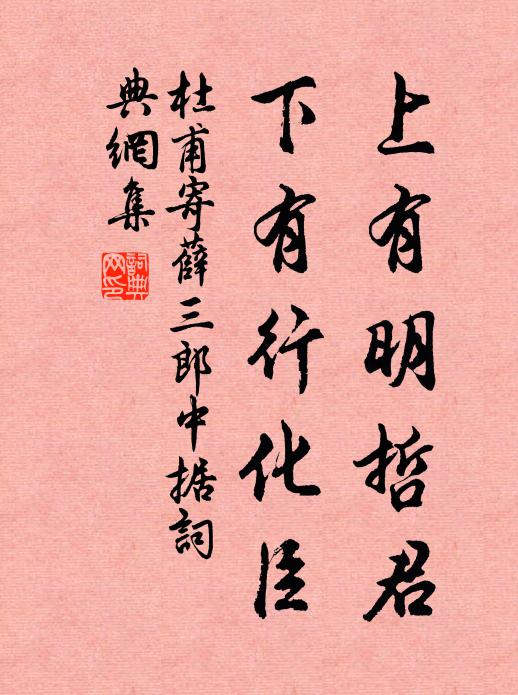 上有明哲君
下有行化臣
杜甫寄薛三郎中据詞
典網集
詞典網印